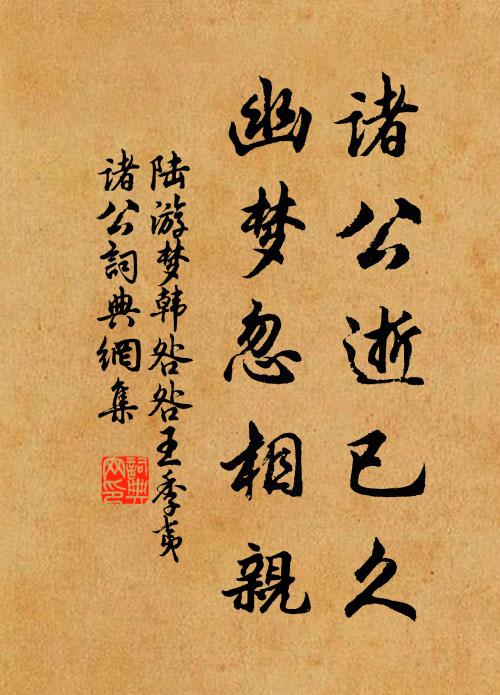 诸公逝已久
幽梦忽相親
陆游梦韩咎咎王季夷
诸公詞典網集
詞典
网印